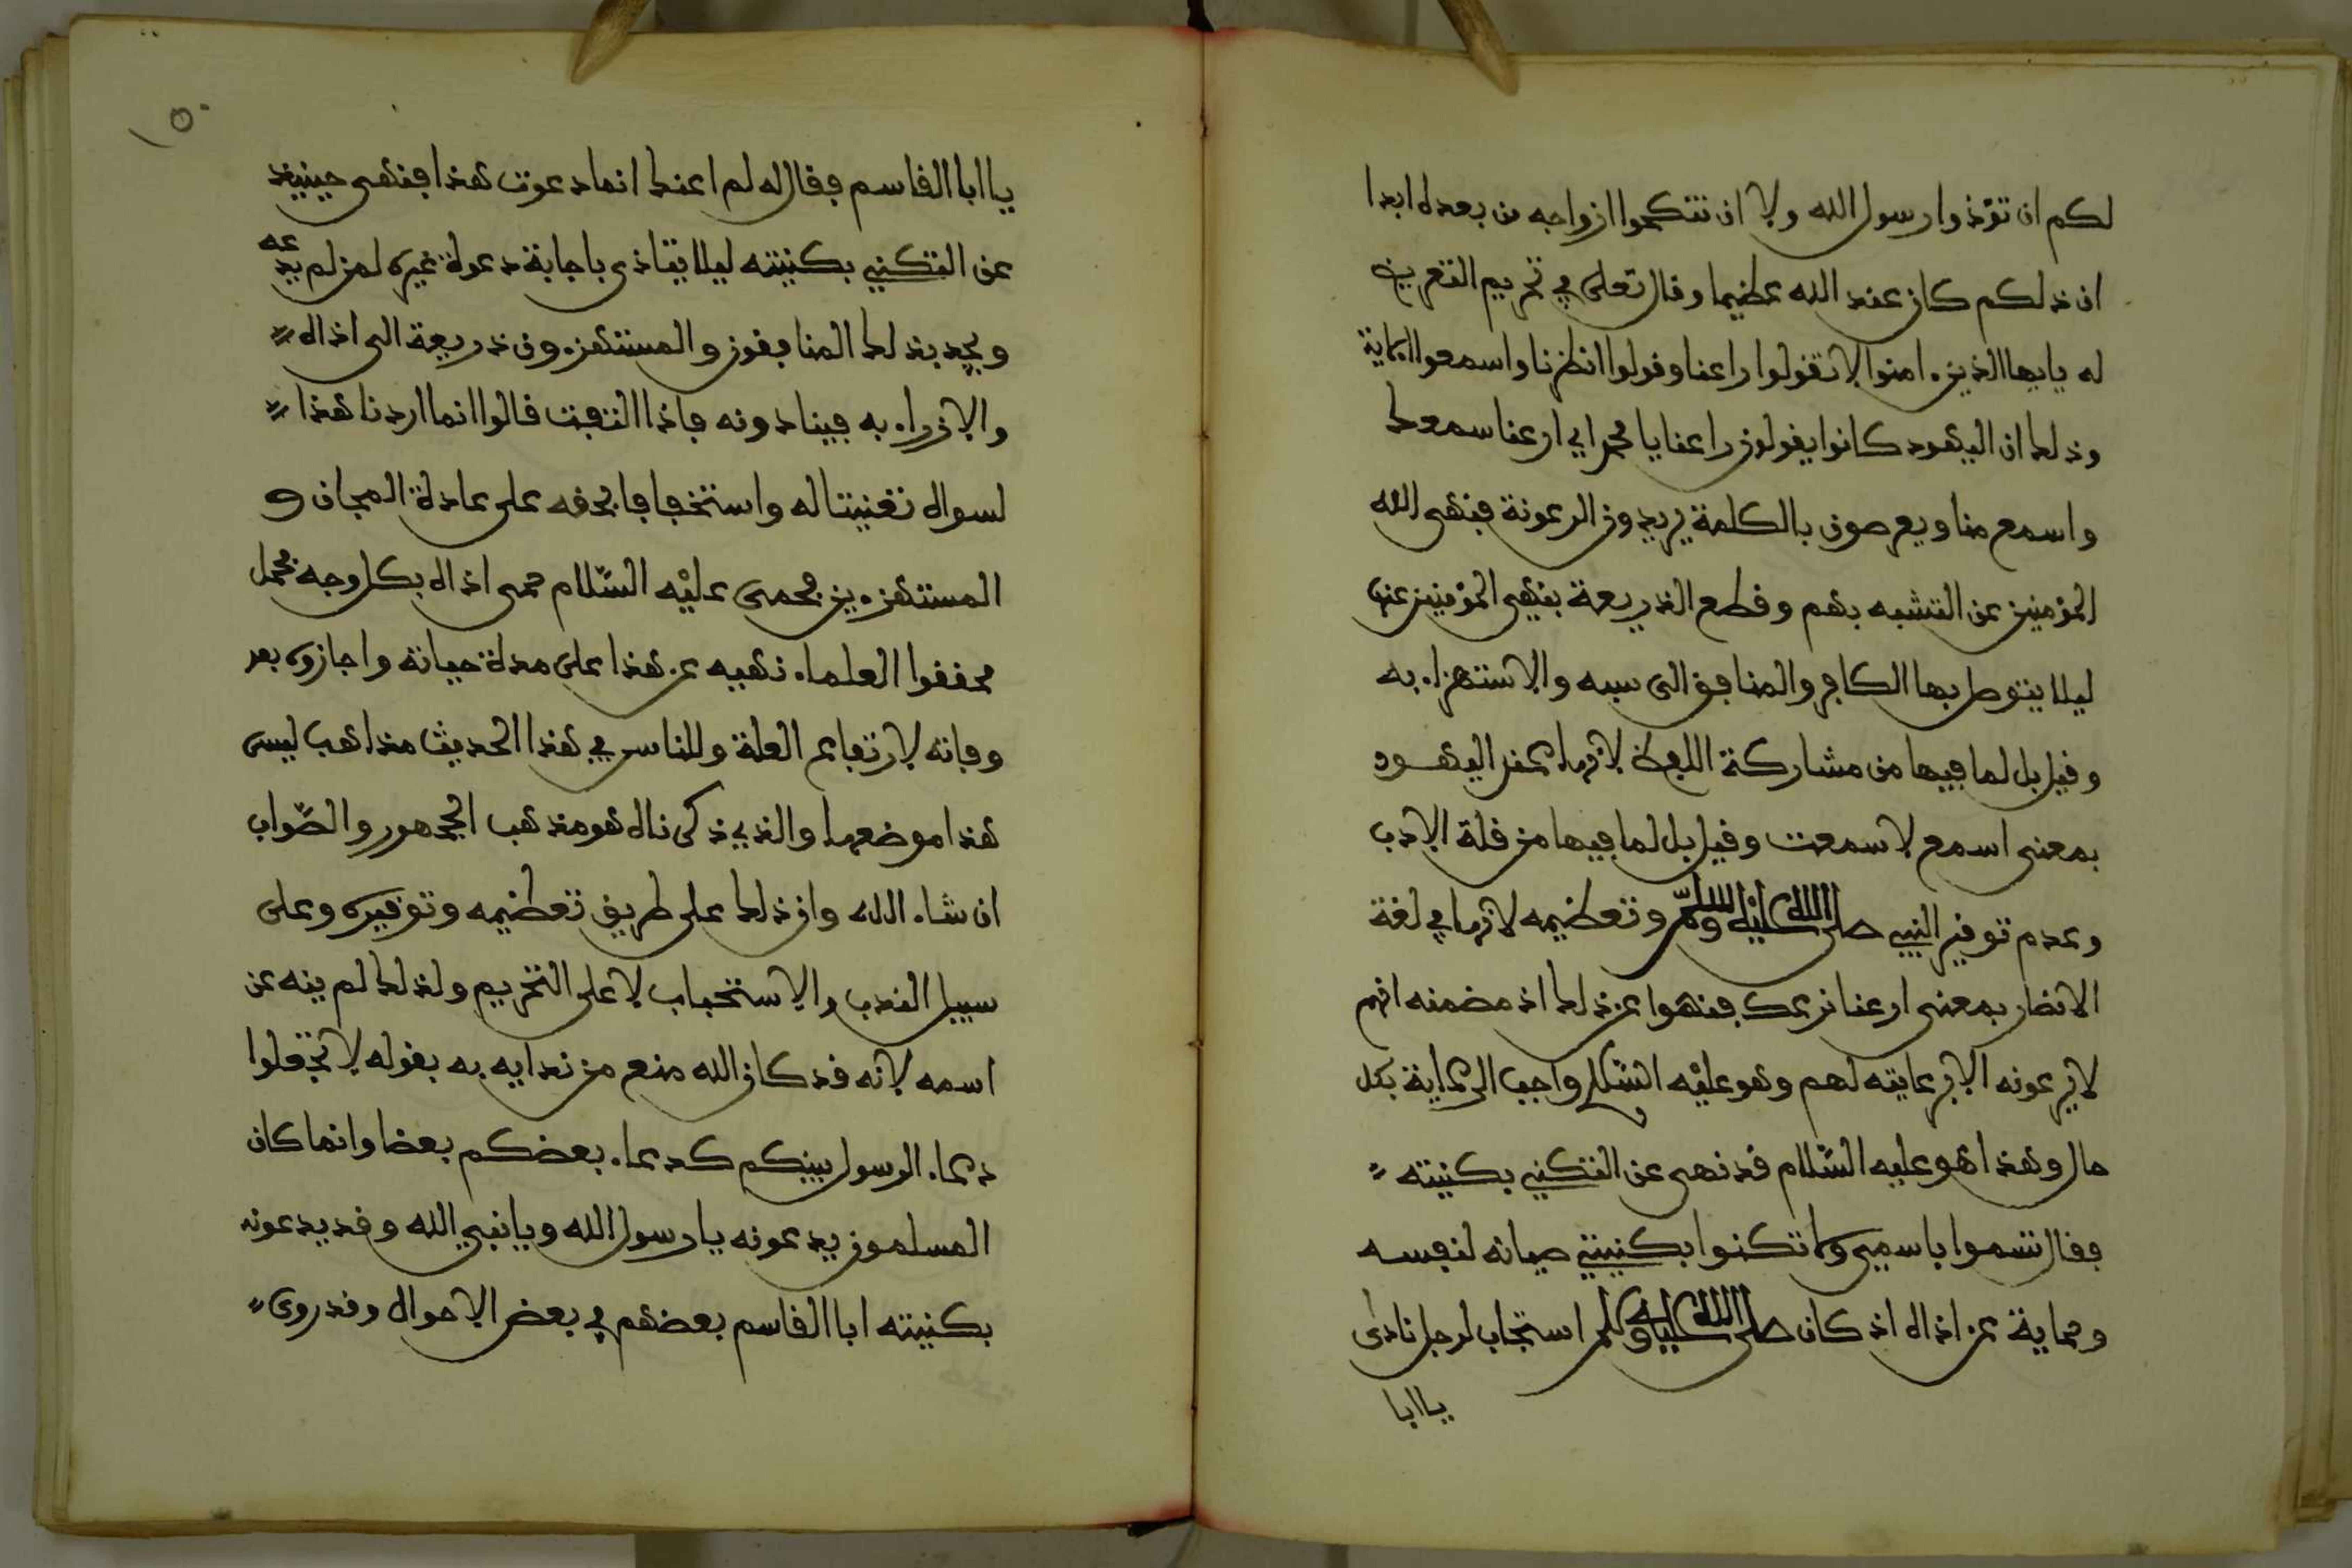 لكم ان تؤذوا رسول الله ولا ان تنكحوا ازواجه من بعده ابدا
ان ذلكم كان عند الله عظيما وقال تعلى في تحريم التعريض
له يايها الذين ءامنوا لا تقولوا راعنا وقولوا انظرنا واسمعوا الاية
وذلك ان اليهود كانوا يقولون راعنا يا محمد اي ارعنا سمعك
واسمع منا ويعرضون بالكلمة يريدون الرعونة فنهى الله
المؤمنين عن التشبه بهم وقطع الذريعة بنهي المؤمنين عنها
ليلا يتوصل بها الكافر والمنافق الى سبه والاستهزاء به
وقيل بل لما فيها من مشاركة اللفظ لانها عند اليهود
بمعنى اسمع لا سمعت وقيل بل لما فيها من قلة الادب
وعدم توقير النبي صلى الله عليه وسلم وتعظيمه لانها في لغة
الانصار بمعنى ارعنا نرعك فنهوا عن ذلك اذ مضمنه انهم
لا يرعونه الا برعايته لهم وهو عليه السلام واجب الرعاية بكل
حال وهذا هو عليه السلام قد نهى عن التكني بكنيته
فقال تسموا باسمي ولا تكنوا بكنيتي صيانة لنفسه
وحماية عن اذاه اذ كان صلى الله عليه وسلم استجاب لرجل نادى
يا ابا
١٥٠
يا ابا القاسم فقال له لم اعنك انما دعوت هذا فنهى حينيذ
عن التكني بكنيته ليلا يتاذى باجابة دعوة غيره لمن لم يدعه
ويجد بذلك المنافقون والمستهزءون ذريعة الى اذاه
والازراء به فينادونه فاذا التفت قالوا انما اردنا هذا
لسواه تعنيتا له واستخفافا بحقه على عادة المجان و
المستهزءين فحمى عليه السلام حمى اذاه بكل وجه فحمل
محققوا العلماء نهيه عن هذا على مدة حياته واجازوه بعد
وفاته لارتفاع العلة وللناس في هذا الحديث مذاهب ليس
هذا موضعها والذي ذكرناه هو مذهب الجمهور والصواب
ان شاء الله وان ذلك على طريق تعظيمه وتوقيره وعلى
سبيل الندب والاستحباب لا على التحريم ولذلك لم ينه عن
اسمه لانه قد كان الله منع من ندايه به بقوله لا تجعلوا
دعاء الرسول بينكم كدعاء بعضكم بعضا وانما كان
المسلمون يدعونه يا رسول الله ويا نبي الله وقد يدعونه
بكنيته ابا القاسم بعضهم في بعض الاحوال وقد روى